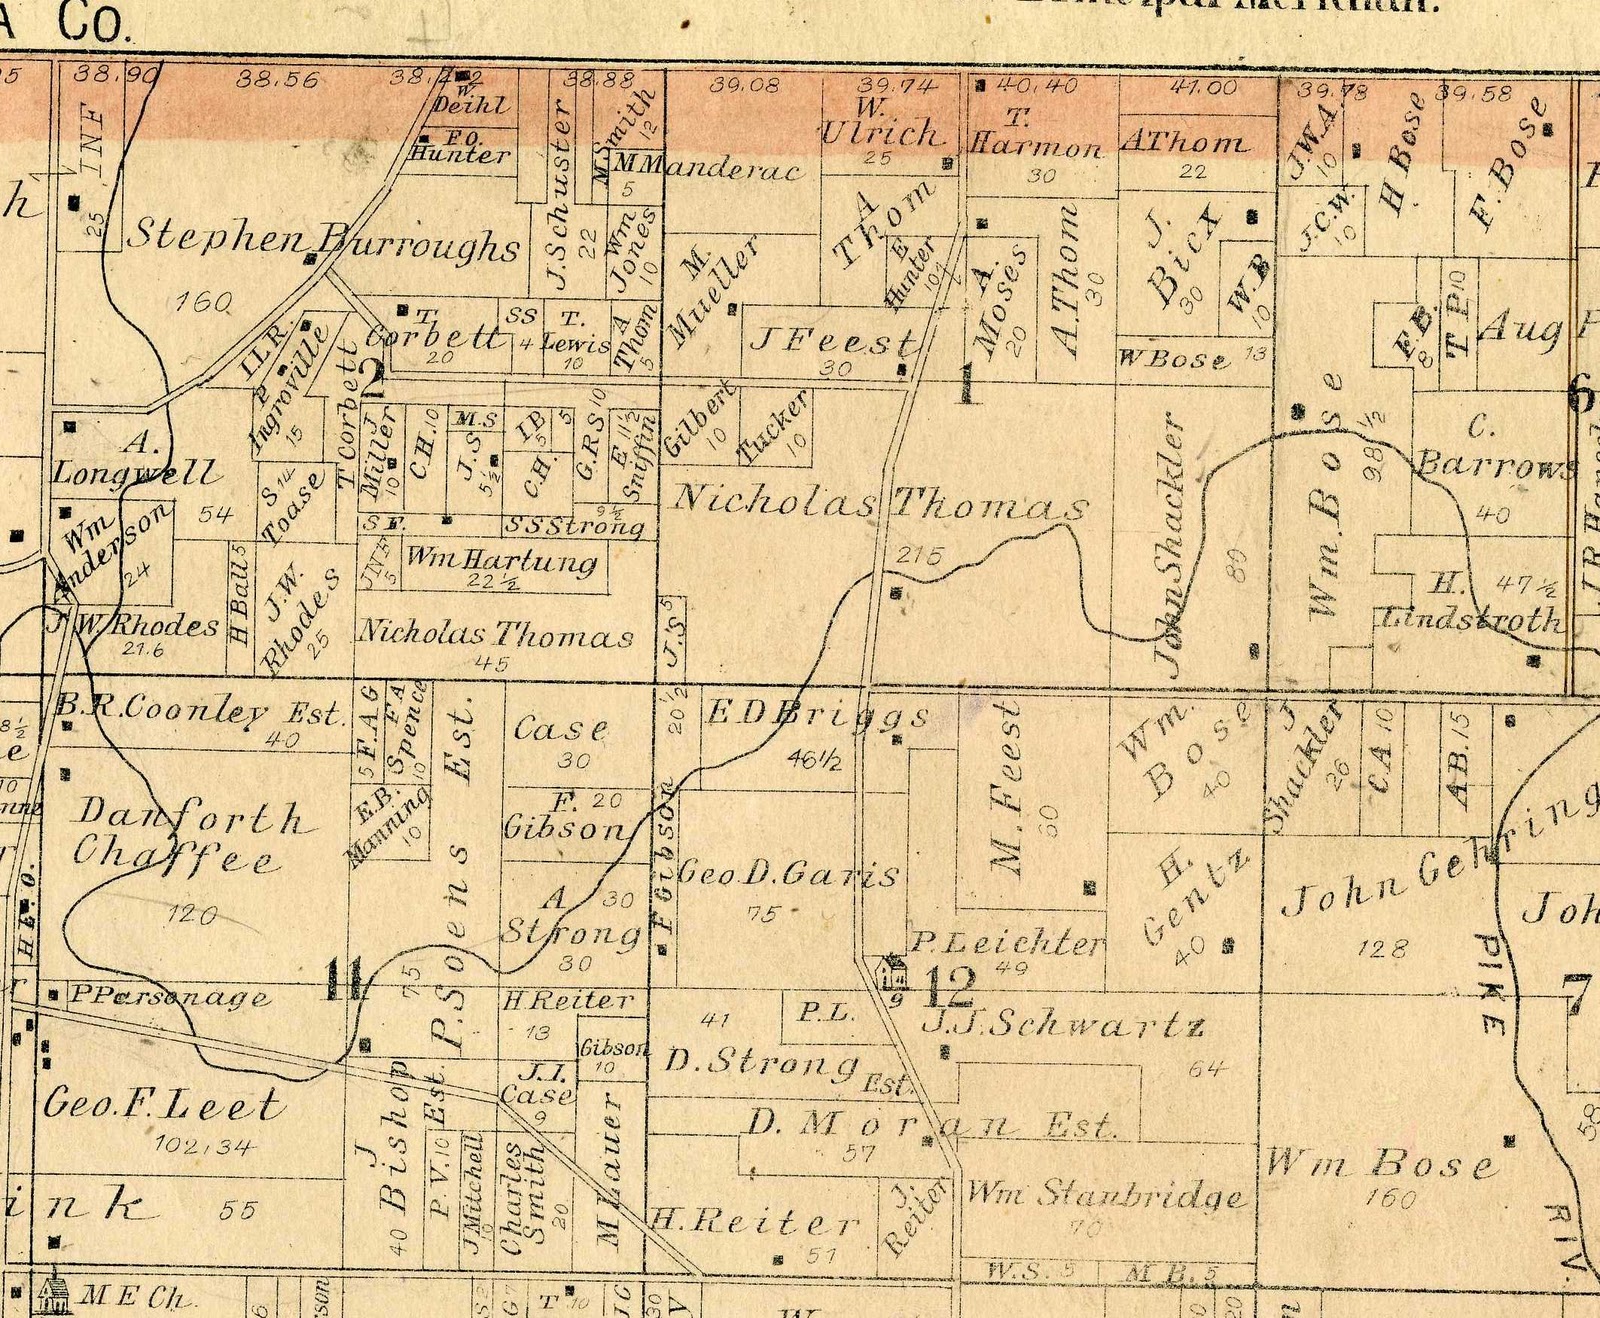 A Co.
Principal Meridian.
38.90
38.56
38.88
39.08
39.74
40.40
41.00
39.78
39.58
INF
25
W.
Deihl
F.O.
Hunter
J. Schuster
22
M Smith
12
M Manderac
5
W.
Ulrich
25
T.
Harmon
30
A Thom
22
J.W.A.
10
H Bose
F. Bose
h
Stephen Burroughs
160
Wm
Jones
10
M.
Mueller
A
Thom
E
Hunter
A.
Moses
20
A. Thom
30
J.
Bicx
30
W.B
10
J.C.W.
10
I.L.R.
P
Ingroville
15
T.
Corbett
20
SS
4
T.
Lewis
10
A
Thom
5
J Feest
30
W Bose 13
E.B.
8
T P 10
Aug
2
1
6
A.
Longwell
54
S 14
Toase
T Corbett
J
Miller
10
C.H. 10
M.S
J.S.
5½
I B
5
5
C.H.
5
G.R.S 10
E 11½
Sniffin
Gilbert
10
Tucker
10
Nicholas Thomas
215
John Shackler
80
Wm. Bose
98½
C.
Barrows
40
Wm
Anderson
24
S F.
9½
S S Strong
JNF
5
Wm Hartung
22½
H. 47½
Lindstroth
J W Rhodes
21.6
H Ball 5
J.W.
Rhodes
25
Nicholas Thomas
45
J.S 5
B.R. Coonley Est.
40
5 F.A G
F A
Spence
10
Case
30
20½
E D Briggs
46½
M. Feest
60
Wm.
Bose
40
J
Shackler
26
C A 10
A B. 15
Danforth
Chaffee
120
E.B.
Manning
10
P. Soens Est.
75
F. 20
Gibson
F Gibson
Geo. D. Garis
75
H.
Gentz
40
John Gehring
128
Joh
H E. O.
A 30
Strong
30
P. Leichter
49
P Parsonage
11
H Reiter
13
9
12
7
PIKE
41
P.L.
J.J. Schwartz
64
Gibson
10
D. Strong
Est.
Geo. F. Leet
102.34
J
Bishop
40
Est.
J.I.
Case
9
D. Moran Est.
57
58
Wm Bose
160
ink 55
P.V. 10
J Mitchell
10
Charles
Smith
20
M Lauer
H. Reiter
51
J.
Reiter
Wm Stanbridge
70
RIV.
W.S. 5
M B. 5
M E Ch.
6
T 10
30
20